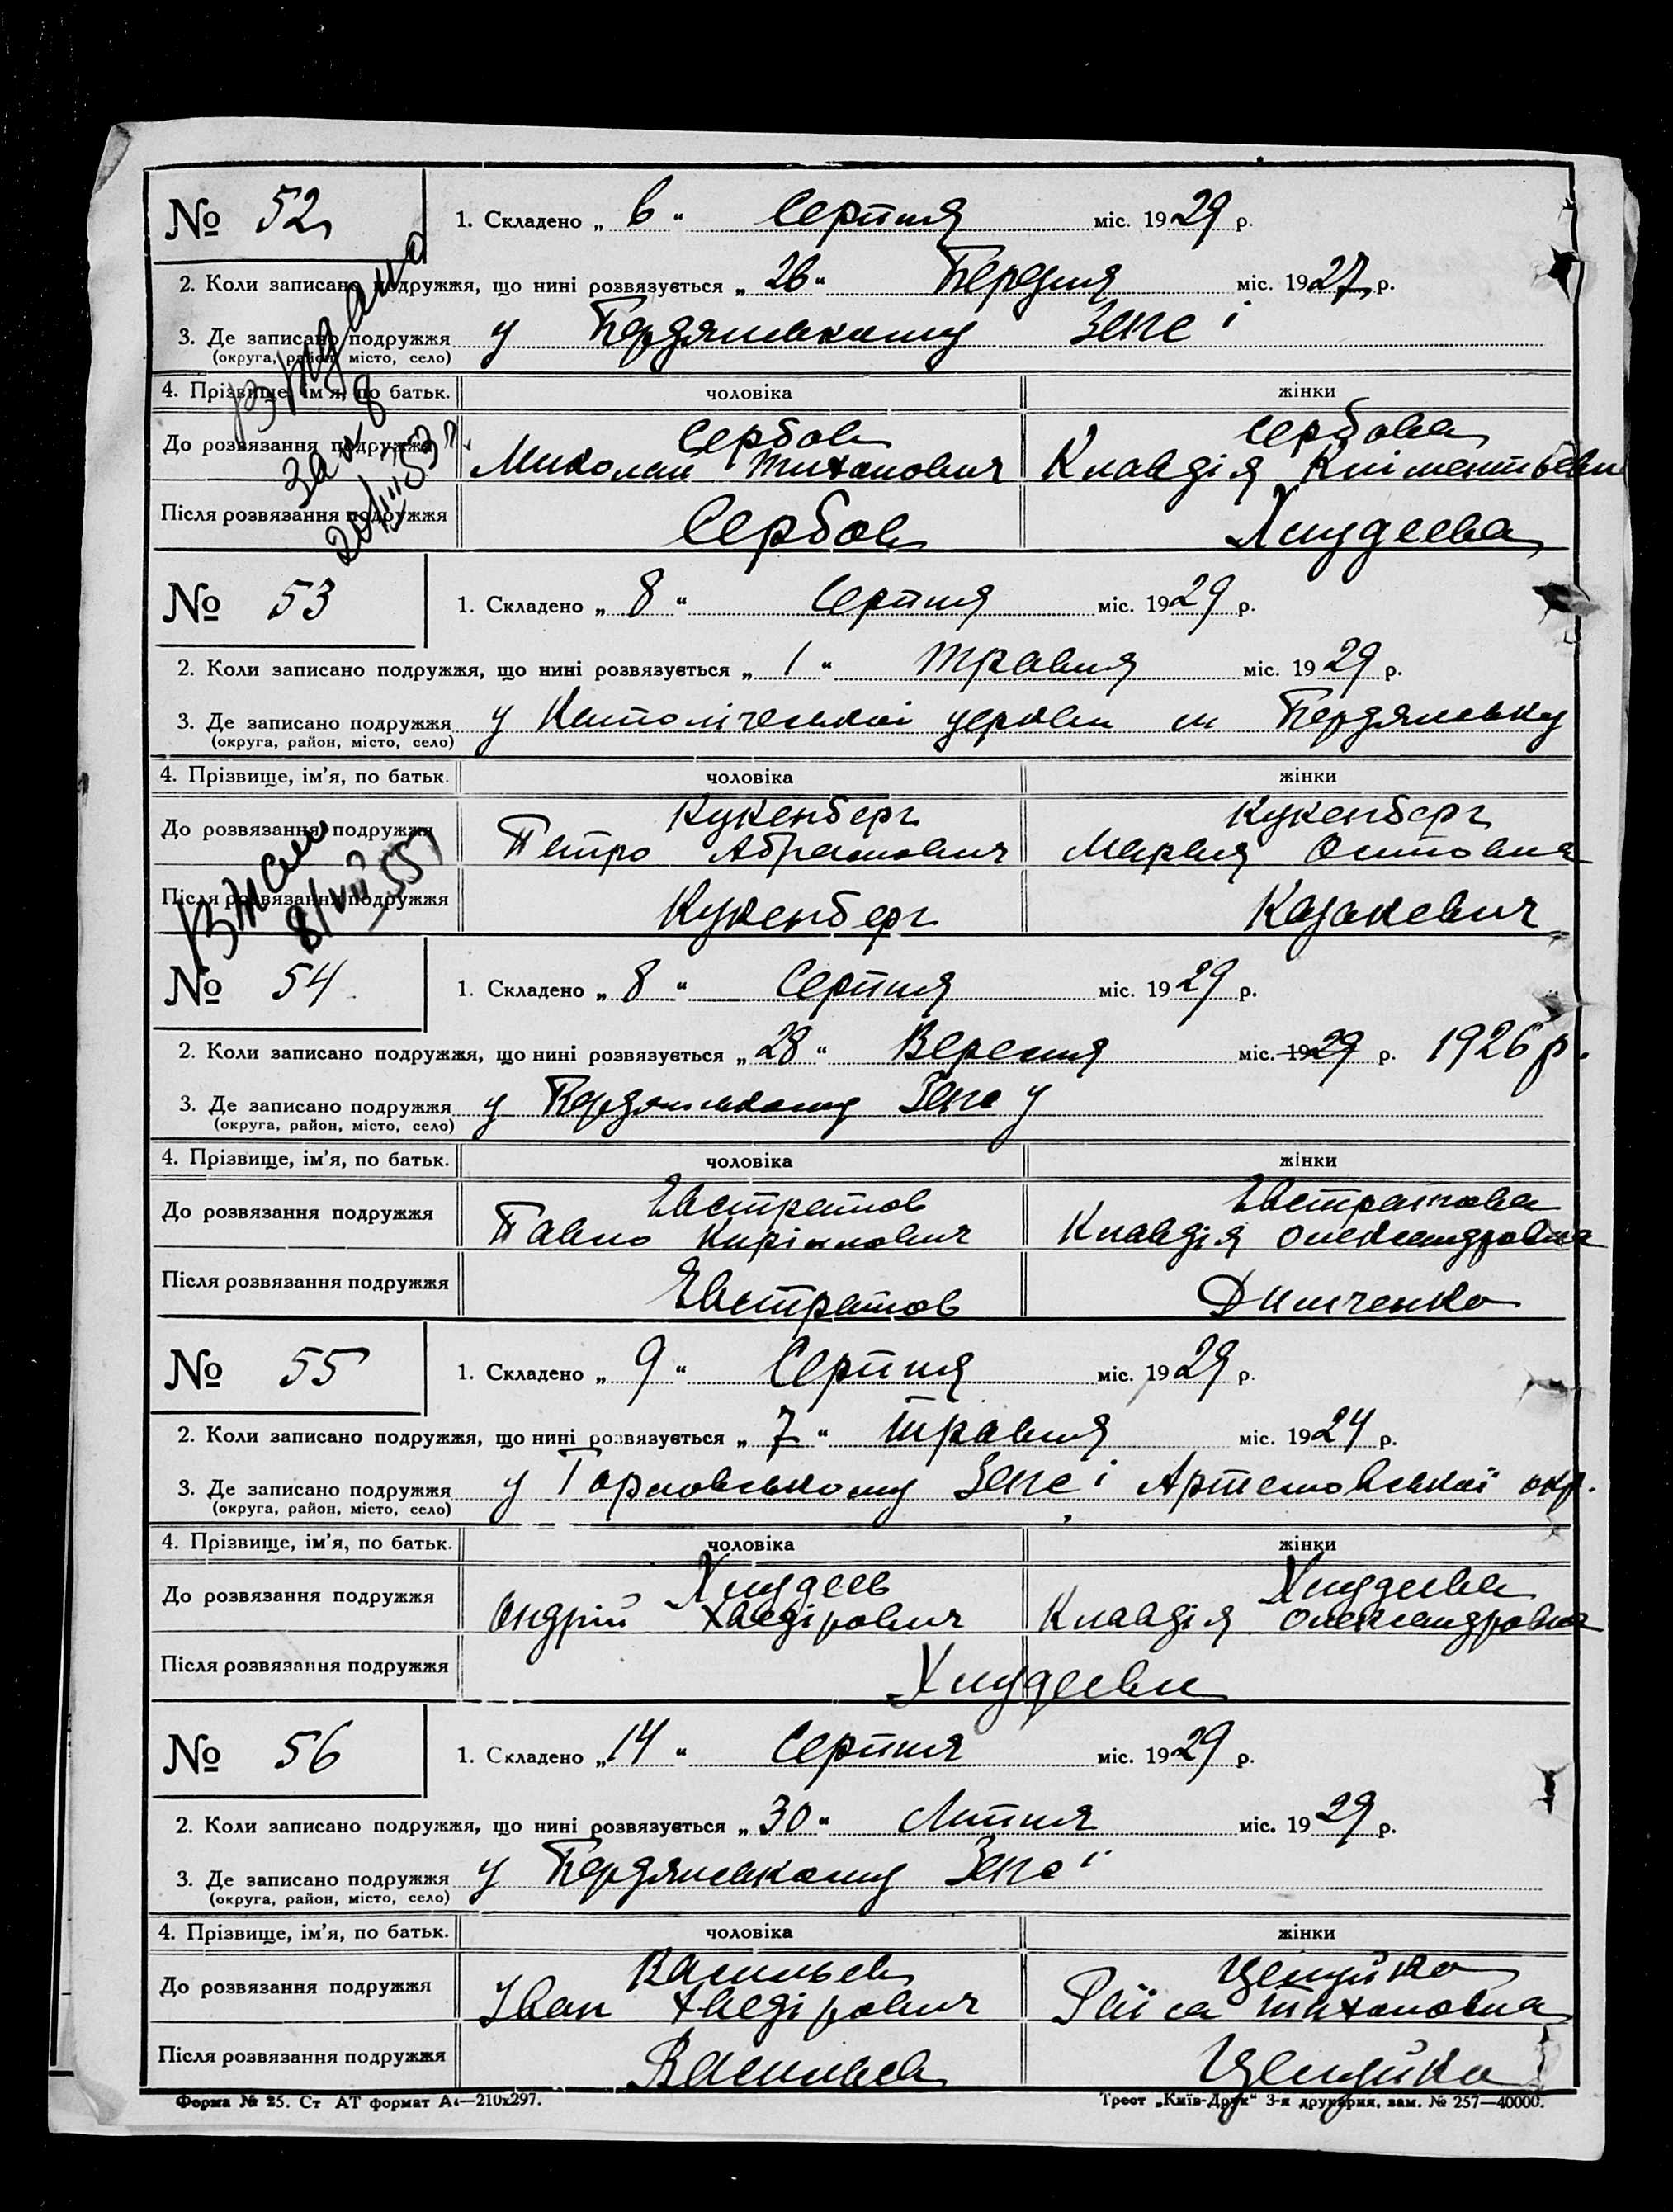 № 52
1. Складено „ 6 “ Серпня міс. 1929 р.
2. Коли записано подружжя, що нині розвязується „ 26 “ Березня міс. 1927 р.
3. Де записано подружжя у Бердянському Загсі
(округа, район, місто, село)
4. Прізвище, ім'я, по батьк. чоловіка жінки
Сербов Сербова
До розвязання подружжя Миколай Тихонович Клавдія
Після розвязання подружжя Сербов Хлудеева
№ 53
1. Складено „ 8 “ Серпня міс. 1929 р.
2. Коли записано подружжя, що нині розвязується „ 1 “ Травня міс. 1929 р.
3. Де записано подружжя у Католіческий церкви м Бердянську
(округа, район, місто, село)
4. Прізвище, ім'я, по батьк. чоловіка жінки
Кукенберг Кукенберг
До розвязання подружжя Петро Абрамович Мария Осиповна
Після розвязання подружжя Кукенберг Казакевич
8/VII 55
№ 54
1. Складено „ 8 “ Серпня міс. 1929 р.
2. Коли записано подружжя, що нині розвязується „ 28 “ Вересня міс. 1929 р. 1926 р.
3. Де записано подружжя у Бердянському Загсу
(округа, район, місто, село)
4. Прізвище, ім'я, по батьк. чоловіка жінки
Евстратов Евстратова
До розвязання подружжя Павло Кирілович Клавдія Олександровна
Після розвязання подружжя Евстратов Димченко
№ 55
1. Складено „ 9 “ Серпня міс. 1929 р.
2. Коли записано подружжя, що нині розвязується „ 7 “ Травня міс. 1924 р.
3. Де записано подружжя у Горловському Загсі Артемовської окр.
(округа, район, місто, село)
4. Прізвище, ім'я, по батьк. чоловіка жінки
Хлудеев Хлудеева
До розвязання подружжя Андрій Клавдія Олександровна
Після розвязання подружжя Хлудееви
№ 56
1. Складено „ 14 “ Серпня міс. 1929 р.
2. Коли записано подружжя, що нині розвязується „ 30 “ Липня міс. 1929 р.
3. Де записано подружжя у Бердянському Загсі
(округа, район, місто, село)
4. Прізвище, ім'я, по батьк. чоловіка жінки
Васильев
До розвязання подружжя Іван Раїса Тихоновна
Після розвязання подружжя Васильев
Форма № 25. Ст АТ формат А4—210x297. Трест „Київ-Друк“ 3-я друкарня, зам. № 257—40000.